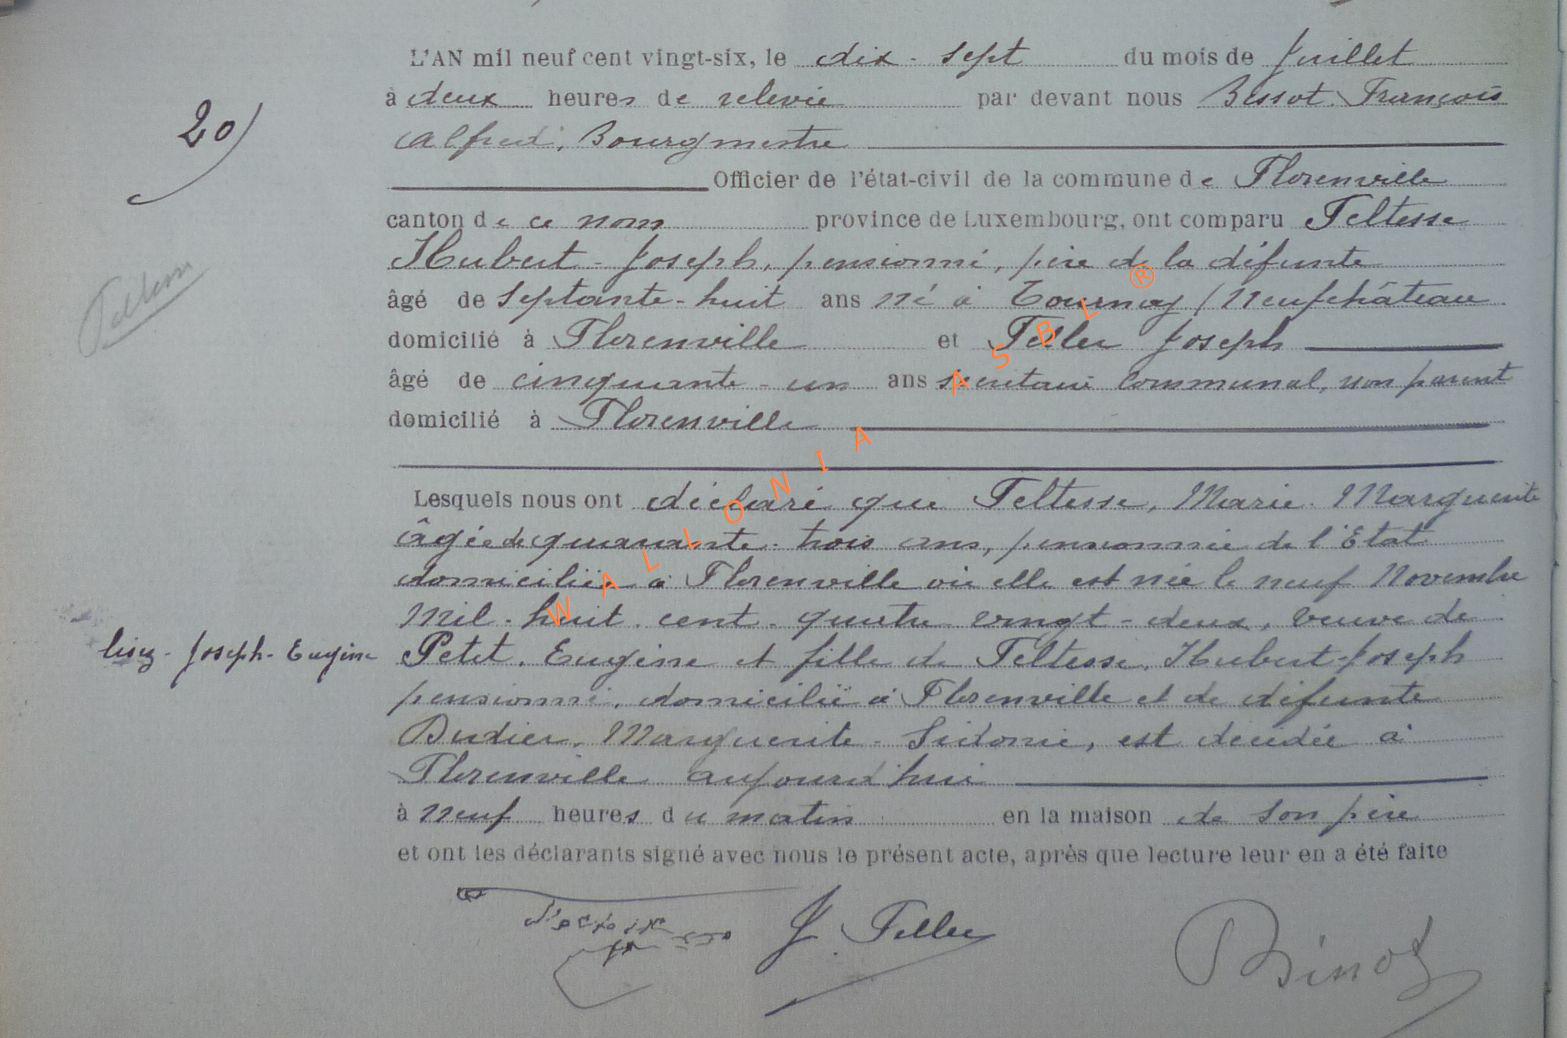 L'AN mil neuf cent vingt-six, le dix-sept du mois de Juillet
20)
à deux heures de relevée par devant nous François
Alfred, Bourgmestre
Officier de l'état-civil de la commune de Florenville
canton de ce nom province de Luxembourg, ont comparu Feltesse
Hubert-Joseph, pensionné, père de la défunte
âgé de septante-huit ans né à Tournay (Neufchâteau
domicilié à Florenville et Feller Joseph
âgé de cinquante-un ans secrétaire communal, non parent
domicilié à Florenville
Lesquels nous ont déclaré que Feltesse, Marie-Marguerite
âgée de quarante-trois ans, pensionnée de l'Etat
domiciliée à Florenville où elle est née le neuf Novembre
Mil-huit-cent-quatre vingt-deux, veuve de
lisez-Joseph-Eugène
Petit, Eugène et fille de Feltesse, Hubert-Joseph
pensionné, domicilié à Florenville et de défunte
Dudier, Marguerite-Sidonie, est décédée à
Florenville aujourd'hui
à neuf heures du matin en la maison de son père
et ont les déclarants signé avec nous le présent acte, après que lecture leur en a été faite
J. Feller
WALLONIA ASBL ®